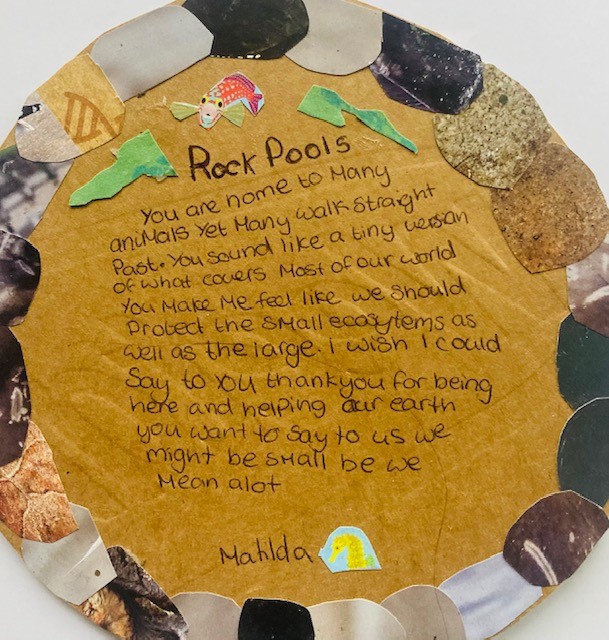 Rock Pools
You are home to Many
animals yet Many walk straight
Past. You sound like a tiny version
of what covers Most of our world
You Make Me feel like we should
Protect the small ecosytems as
well as the large. I wish I could
Say to you thankyou for being
here and helping our earth
you want to say to us we
might be small be we
Mean alot
Matilda